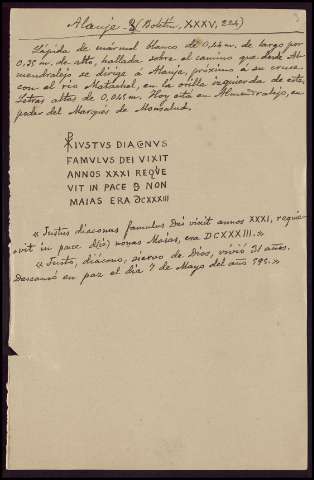 Alanje - (Boletín, XXXV, 224)
Lápida de mármol blanco de 0,44 m. de largo por
0,35 m. de alto, hallada sobre el camino que desde Al-
mendralejo se dirige á Alanje, próximo á su cruce
con el río Matachel, en la orilla izquierda de éste.
Letras altas de 0,045 m. Hoy está en Almendralejo, en
poder del Marqués de Monsalud.
IVSTVS DIACNVS
FAMVLVS DEI VIXIT
ANNOS XXXI REQVE
VIT IN PACE D NON
MAIAS ERA DCXXXIII
«Justus diaconus famulus Dei vixit annos XXXI, reque-
vit in pace d(ie) nonas Maias, era DCXXXIII.»
«Justo, diácono, siervo de Dios, vivió 31 años.
Descansó en paz el día 7 de Mayo del año 595.»